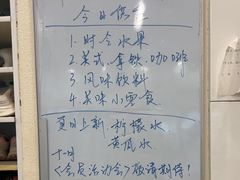 今日供应
1. 时令水果
2. 美式、拿铁、咖啡
3. 风味饮料
4. 美味小零食
夏日上新：柠檬水
黄瓜水
十一月
《会员活动会》敬请期待！